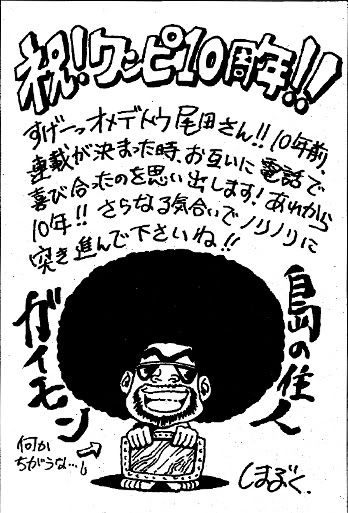 祝!ワンピ10周年!!
すげーっオメデトウ尾田さん!!10年前、
連載が決まった時、お互いに電話で
喜び合ったのを思い出します!あれから
10年!!さらなる気合いでノリノリに
突き進んで下さいね!!
島の住人
ガイモン
何か
ちがうな…
しまぶく.